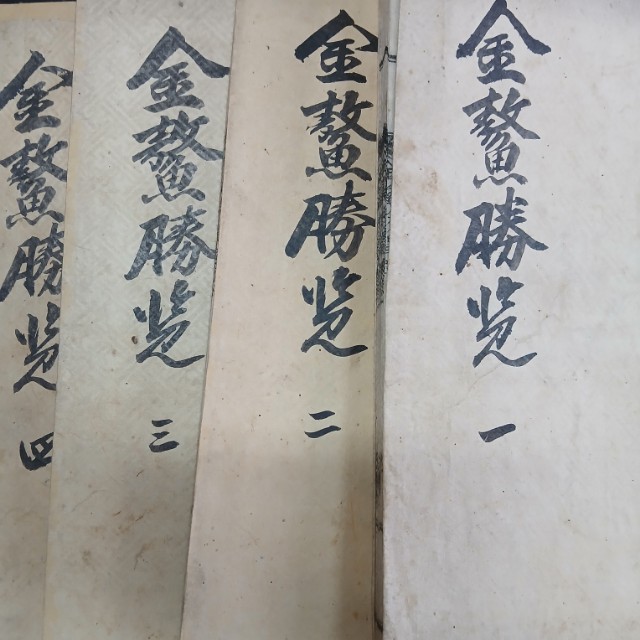 金鰲勝览一
金鰲勝览二
金鰲勝览三
金鰲勝览四